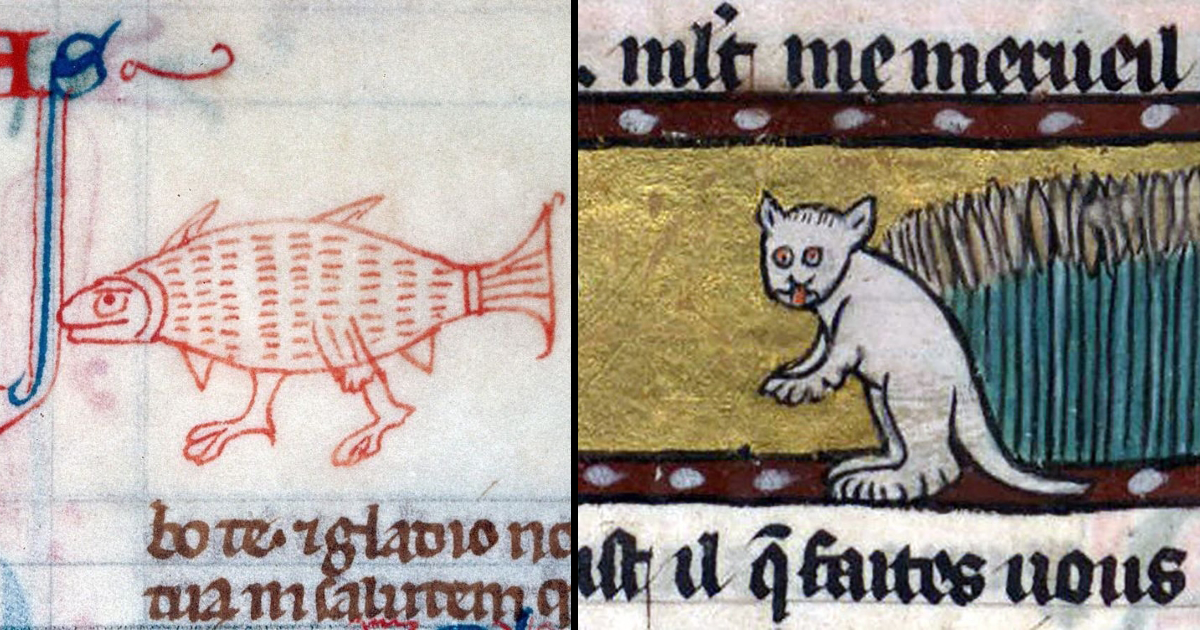 bo te. ⁊ gladio no
tua in salutem q
. mlt̄ me merueil
ist il q̄ faites uous